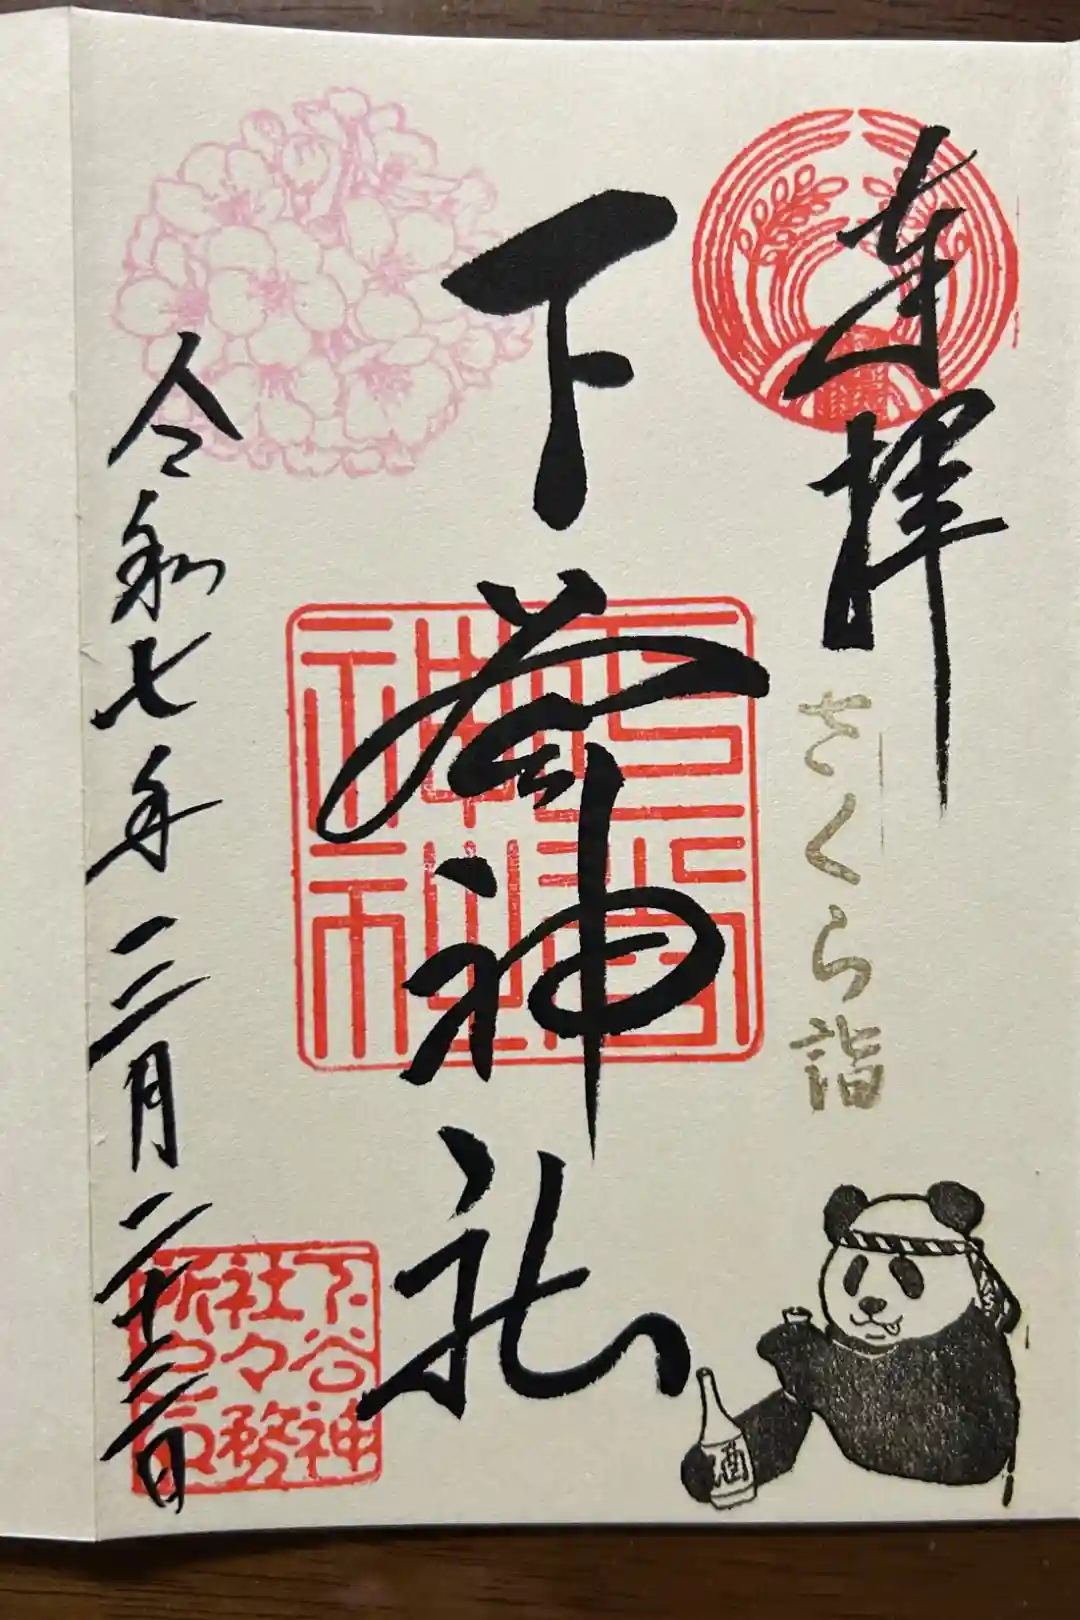 奉拝
さくら詣
下谷神社
下谷
神社
令和七年三月二十三日
下谷神
社々務
所之印
酒